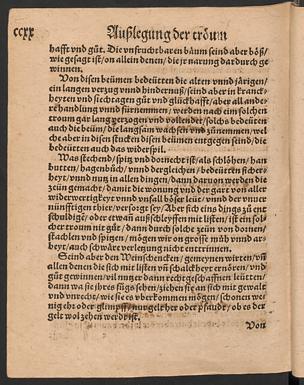 ccxx
Außlegung der tröum
hafft vnd gůt. Die vnfruchtbaren bäum seind aber böß/
wie gesagt ist/on allein denen/die jr narung dardurch ge
winnen.
Von disen beümen bedeütten die alten vnnd järigen/
ein langen verzug vnnd hindernuß/seind aber in kranck-
heyten vnd siechtagen gůt vnd glückhafft/aber all ande-
re handlung vnnd fürnemmen/werden nach eim solchen
traum gar lang verzogen vnd vollendet/solchs bedeüten
auch die beüm/die langsam wachsen vnd zůnemmen/wel
che aber in disen stucken disen beümen entgegen seind/die
bedeütten auch das widerspil.
Was stechend/spitz vnd dornecht ist/als schlöhen/han
butten/hagenbüch/vnnd dergleichen/bedeütten sicher-
heyt/vnnd nutz in allen dingen/dann daruon werden die
zeün gemacht/damit die wonung vnd der gart von aller
widerwertigkeyt vnd vnfall böser leüt/vnnd der vnuer
nünfftigen thier/verfügt sey/Aber sich eins dings zů ent
schuldigē/oder etwan außschleyffen mit listen/ist ein sol-
cher traum nit gůt/dann durch solche zeün von dornen/
stachlen vnd spitzen/mögen wir on grosse müh vnnd ar-
beyt/auch schwäre verletzung nicht entrinnen.
Seind aber den Weinschencken/gemeynen wirten/vn̄
allen denen die sich mit listen vn̄ schalckheyt ernören/vnd
gůt gewinnen/vil mer dann rechtgeschaffnen leütten/
dann wa sie jhres fůgs sehen/ziehen sie an sich mit gewalt
vnd vnrecht/wie sie es vberkommen mögen/schonen we-
nig eher oder glimpff/nur gelt her oder pfandt/ob es der
gelt wol zehen werdt ist.
Von